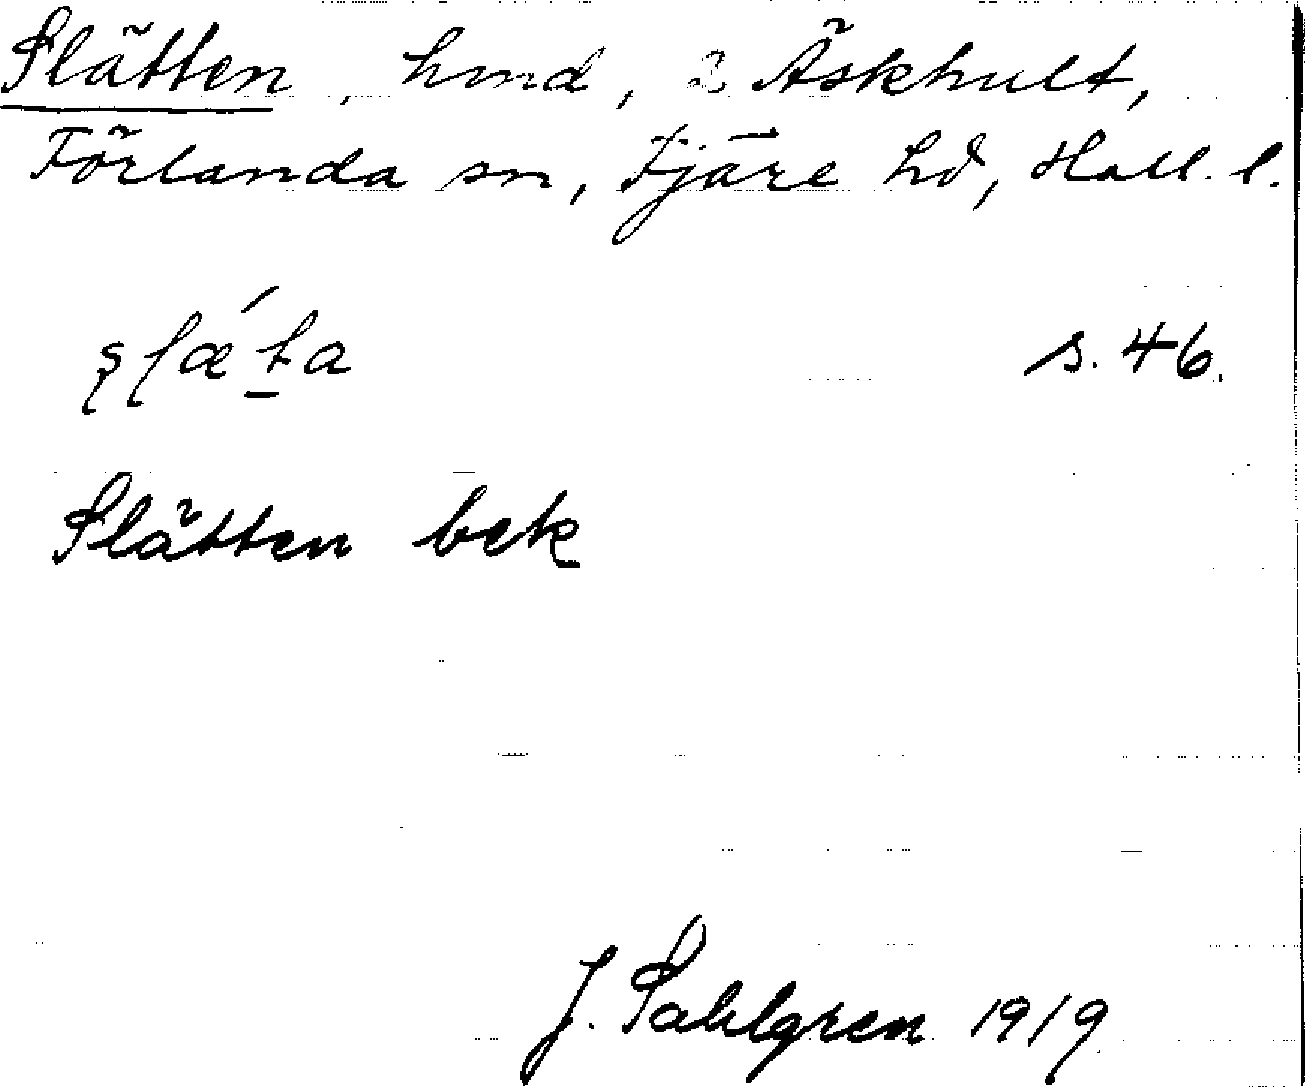 Slätten, hmd, 2 Äskhult,
Förlanda sn, Fjäre hd, Hall. l.
s. 46.
Slätten bek
J. Sahlgren 1919